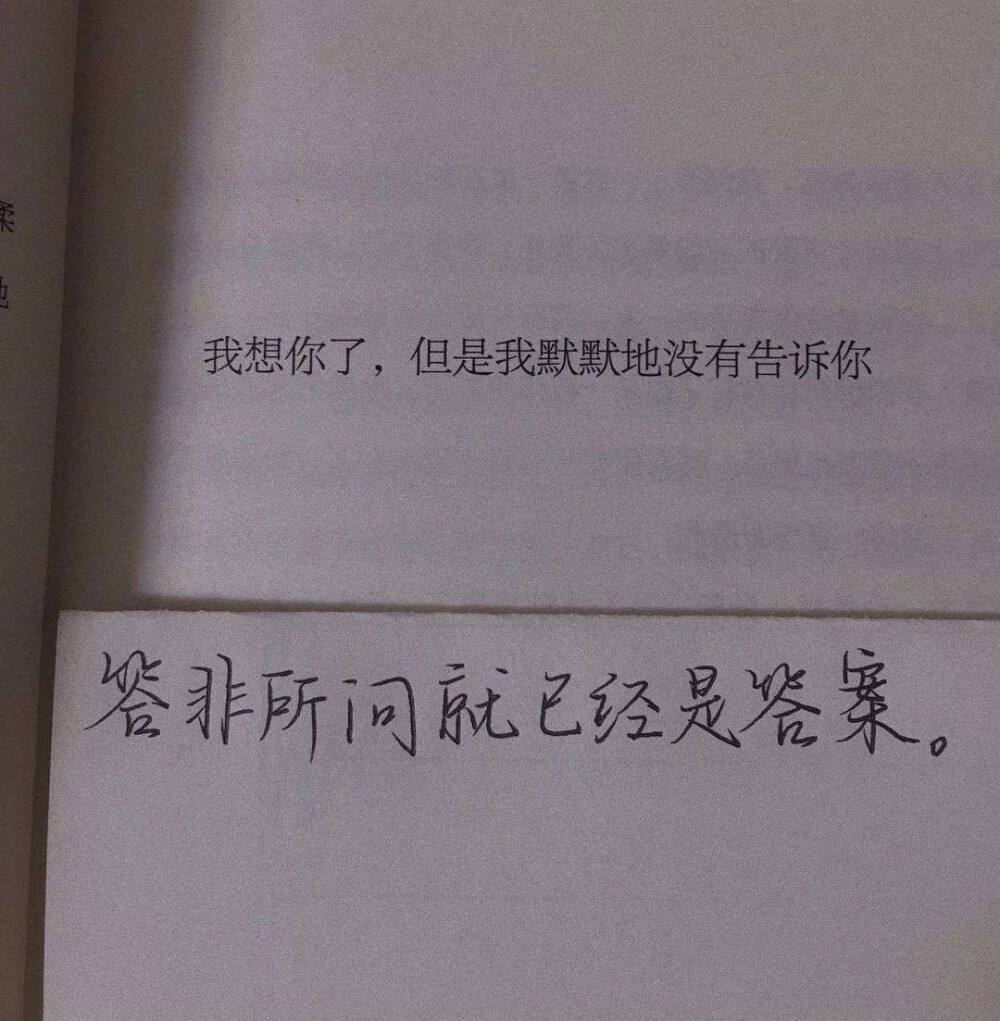 我想你了，但是我默默地没有告诉你
答非所问就已经是答案。